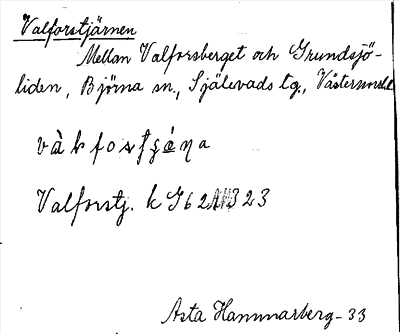 Valforstjärnen
Mellan Valforsberget och Grundsjö-
liden, Björna sn., Själevads tg., Västernorrl.
Valforstj. k G 62 323
Asta Hammarberg - 33